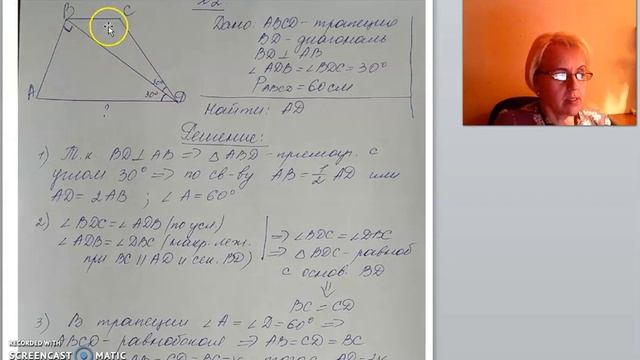 №2.
B C
A D
30°
30°
?
Дано: ABCD - трапеция
BD - диагональ
BD ⊥ AB
∠ADB = ∠BDC = 30°
P ABCD = 60 см
Найти: AD
Решение:
1) Т.к BD ⊥ AB => △ABD - прямоуг. с
углом 30° => по св-ву AB = 1/2 AD или
AD = 2AB ; ∠A = 60°
2) ∠BDC = ∠ADB (по усл)
∠ADB = ∠DBC (накр. леж.
при BC || AD и сек. BD)
=> ∠BDC = ∠DBC
=> △BDC - равноб
с основ. BD
⇓
BC = CD
3) В трапеции ∠A = ∠D = 60° =>
ABCD - равнобокая => AB = CD = BC
RECORDED WITH
SCREENCAST MATIC